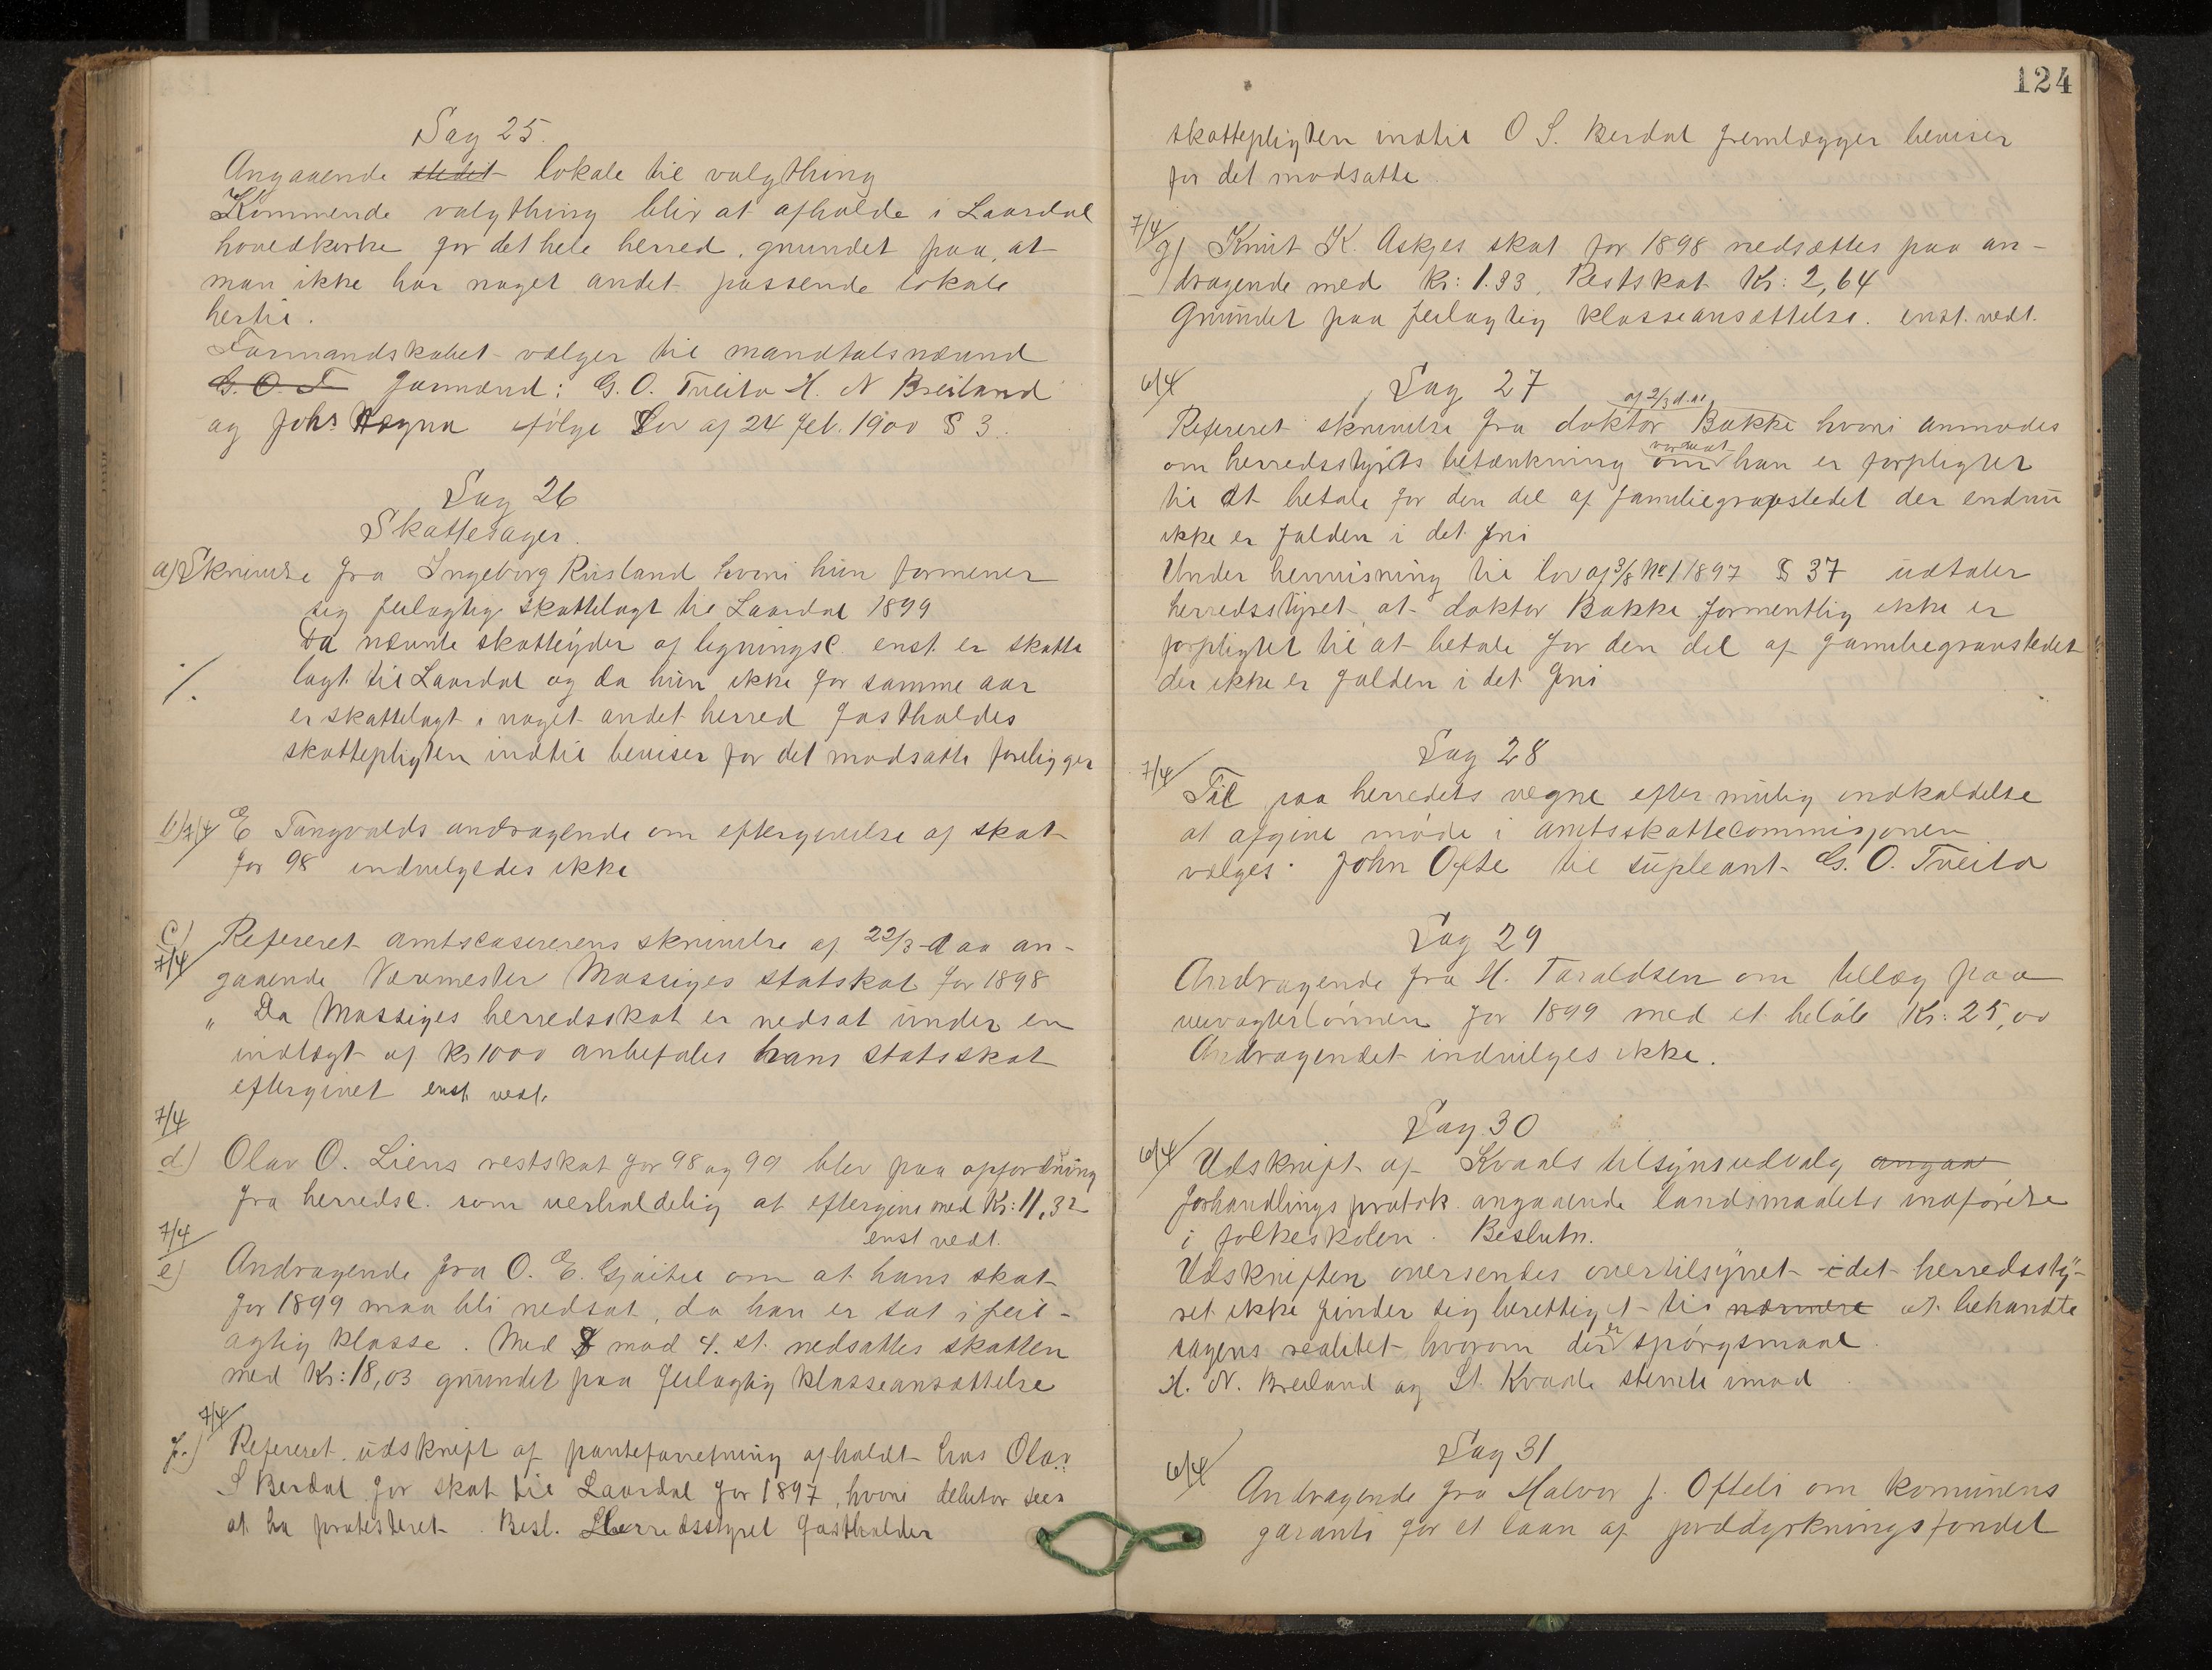 Sag 25.
Angaaende stedet lokale til valgthing
Kommende valgthing blir at afholde i Laardal
hovedkirke for det hele herred, grundet paa, at
man ikke har noget andet passende lokale
hertil.
Formandskabet vælger til mandtalsnævnd
G. O. T formænd: G. O. Tveito H. N Breiland
og Johs Høgna ifølge Lov af 24 feb. 1900 § 3.
Sag 26
Skattesager.
a) Skrivelse fra Ingeborg Risland hvori hun formener
sig feilagtig skattelagt til Laardal 1899
Da nævnte skatteyder af ligningsc. enst. er skatte
lagt til Laardal og da hun ikke for samme aar
er skattelagt i noget andet herred fastholdes
skattepligten indtil beviser for det modsatte foreligger
b) 7/4 E Tangvalds andragende om eftergivelse af skat
for 98 indvilgedes ikke
c) Refereret amtscasererens skrivelse af 22/3 d aa an-
7/4 gaaende Værmester Massiges statskat for 1898
" Da Massiges herredsskat er nedsat under en
indtægt af kr 1000 anbefales hans statsskat
eftergivet enst. vedt.
7/4
d) Olav O. Liens restskat for 98 og 99 blev paa opfordring
fra herredsc. som uerholdelig at eftergives med Kr: 11,32
7/4 enst vedt.
e) Andragende fra O. E. Gjøitil om at hans skat
for 1899 maa bli nedsat, da han er sat i feil-
agtig klasse. Med 8 mod 4. st. nedsattes skatten
med Kr: 18,03 grundet paa feilagtig klasseansættelse
7/4
f.) Refereret udskrift af panteforretning afholdt hos Olav
S Berdal for skat til Laardal for 1897, hvori debitor sees
at ha protesteret. Besl. Herredsstyret fastholder
124
skattepligten indtil O S. Berdal fremlægger beviser
for det modsatte
7/4
g) Knut K. Askjes skat for 1898 nedsættes paa an-
dragende med kr: 1.93, Restskat Kr: 2,64
Grundet paa feilagtig klasseansættelse. enst. vedt.
6/4 Sag 27
af 2/3 d. aa,
Refereret skrivelse fra doktor Bakke hvori anmodes
hvorvidt
om herredsstyrets betænkning om han er forpligtet
til at betale for den del af familiegravstedet der endnu
ikke er falden i det fri
Under henvisning til lov af 3/8 No 1 1897 § 37 udtaler
herredsstyret at doktor Bakke formentlig ikke er
forpligtet til at betale for den del af familiegravstedet
der ikke er falden i det fri
Sag 28
7/4 Til paa herredets vegne efter mulig indkaldelse
at afgive møde i amtsskattecommisjonen
vælges John Ofte til supleant G. O. Tveito
Sag 29
Andragende fra H. Taraldsen om tillæg paa
veivogterlønnen for 1899 med et beløb Kr: 25,00
Andragendet indvilges ikke.
Sag 30
6/4 Udskrift af Kvaals tilsynsudvalg angaa
forhandlingsprotok. angaaende landsmaalets indførelse
i folkeskolen. Beslutn.
Udskriften oversendes overtilsynet idet herredssty-
ret ikke finder sig berettiget til nærmere at behandle
er
sagens realitet hvorom der spørgsmaal.
H. N. Breiland og St. Kvaale stemte imod.
Sag 31
6/4 Andragende fra Halvor J. Ofteli om komunens
garanti for et laan af jorddyrkningsfondet